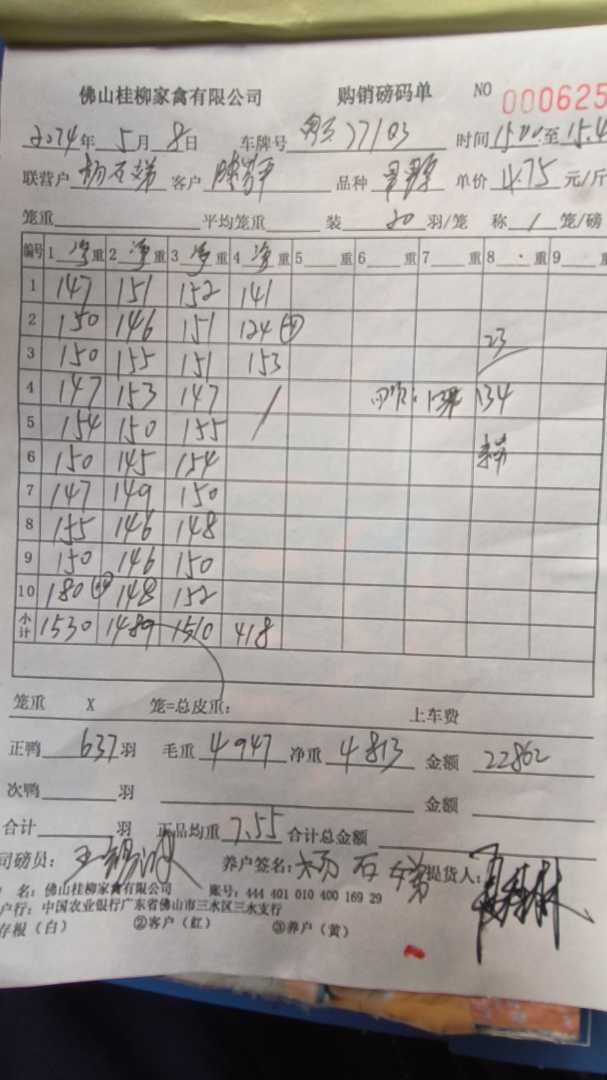 佛山桂柳家禽有限公司 购销磅码单 NO 000625
2024年 5月 8日 车牌号 77103 时间 15:00至15.4
联营户 杨石娣 客户 品种 单价 4.75 元/斤
笼重 平均笼重 装 20 羽/笼 称 1 笼/磅
编号 1 净重 2 净重 3 净重 4 净重 5 重 6 重 7 重 8 重 9 重
1 147 151 152 141
2 150 146 151 124
3 150 155 151 153 23
4 147 153 147 / 134
5 154 150 155
6 150 145 154
7 147 149 150
8 155 146 148
9 150 146 150
10 180 148 152
小计 1530 1489 1510 418
笼重 X 笼=总皮重: 上车费
正鸭 637 羽 毛重 4947 净重 4813 金额 22862
次鸭 羽 金额
合计 羽 正品均重 7.55 合计总金额
司磅员: 养户签名: 杨石娣 提货人:
名: 佛山桂柳家禽有限公司 账号: 444 401 010 400 169 29
户行: 中国农业银行广东省佛山市三水区三水支行
存根(白) ②客户(红) ③养户(黄)